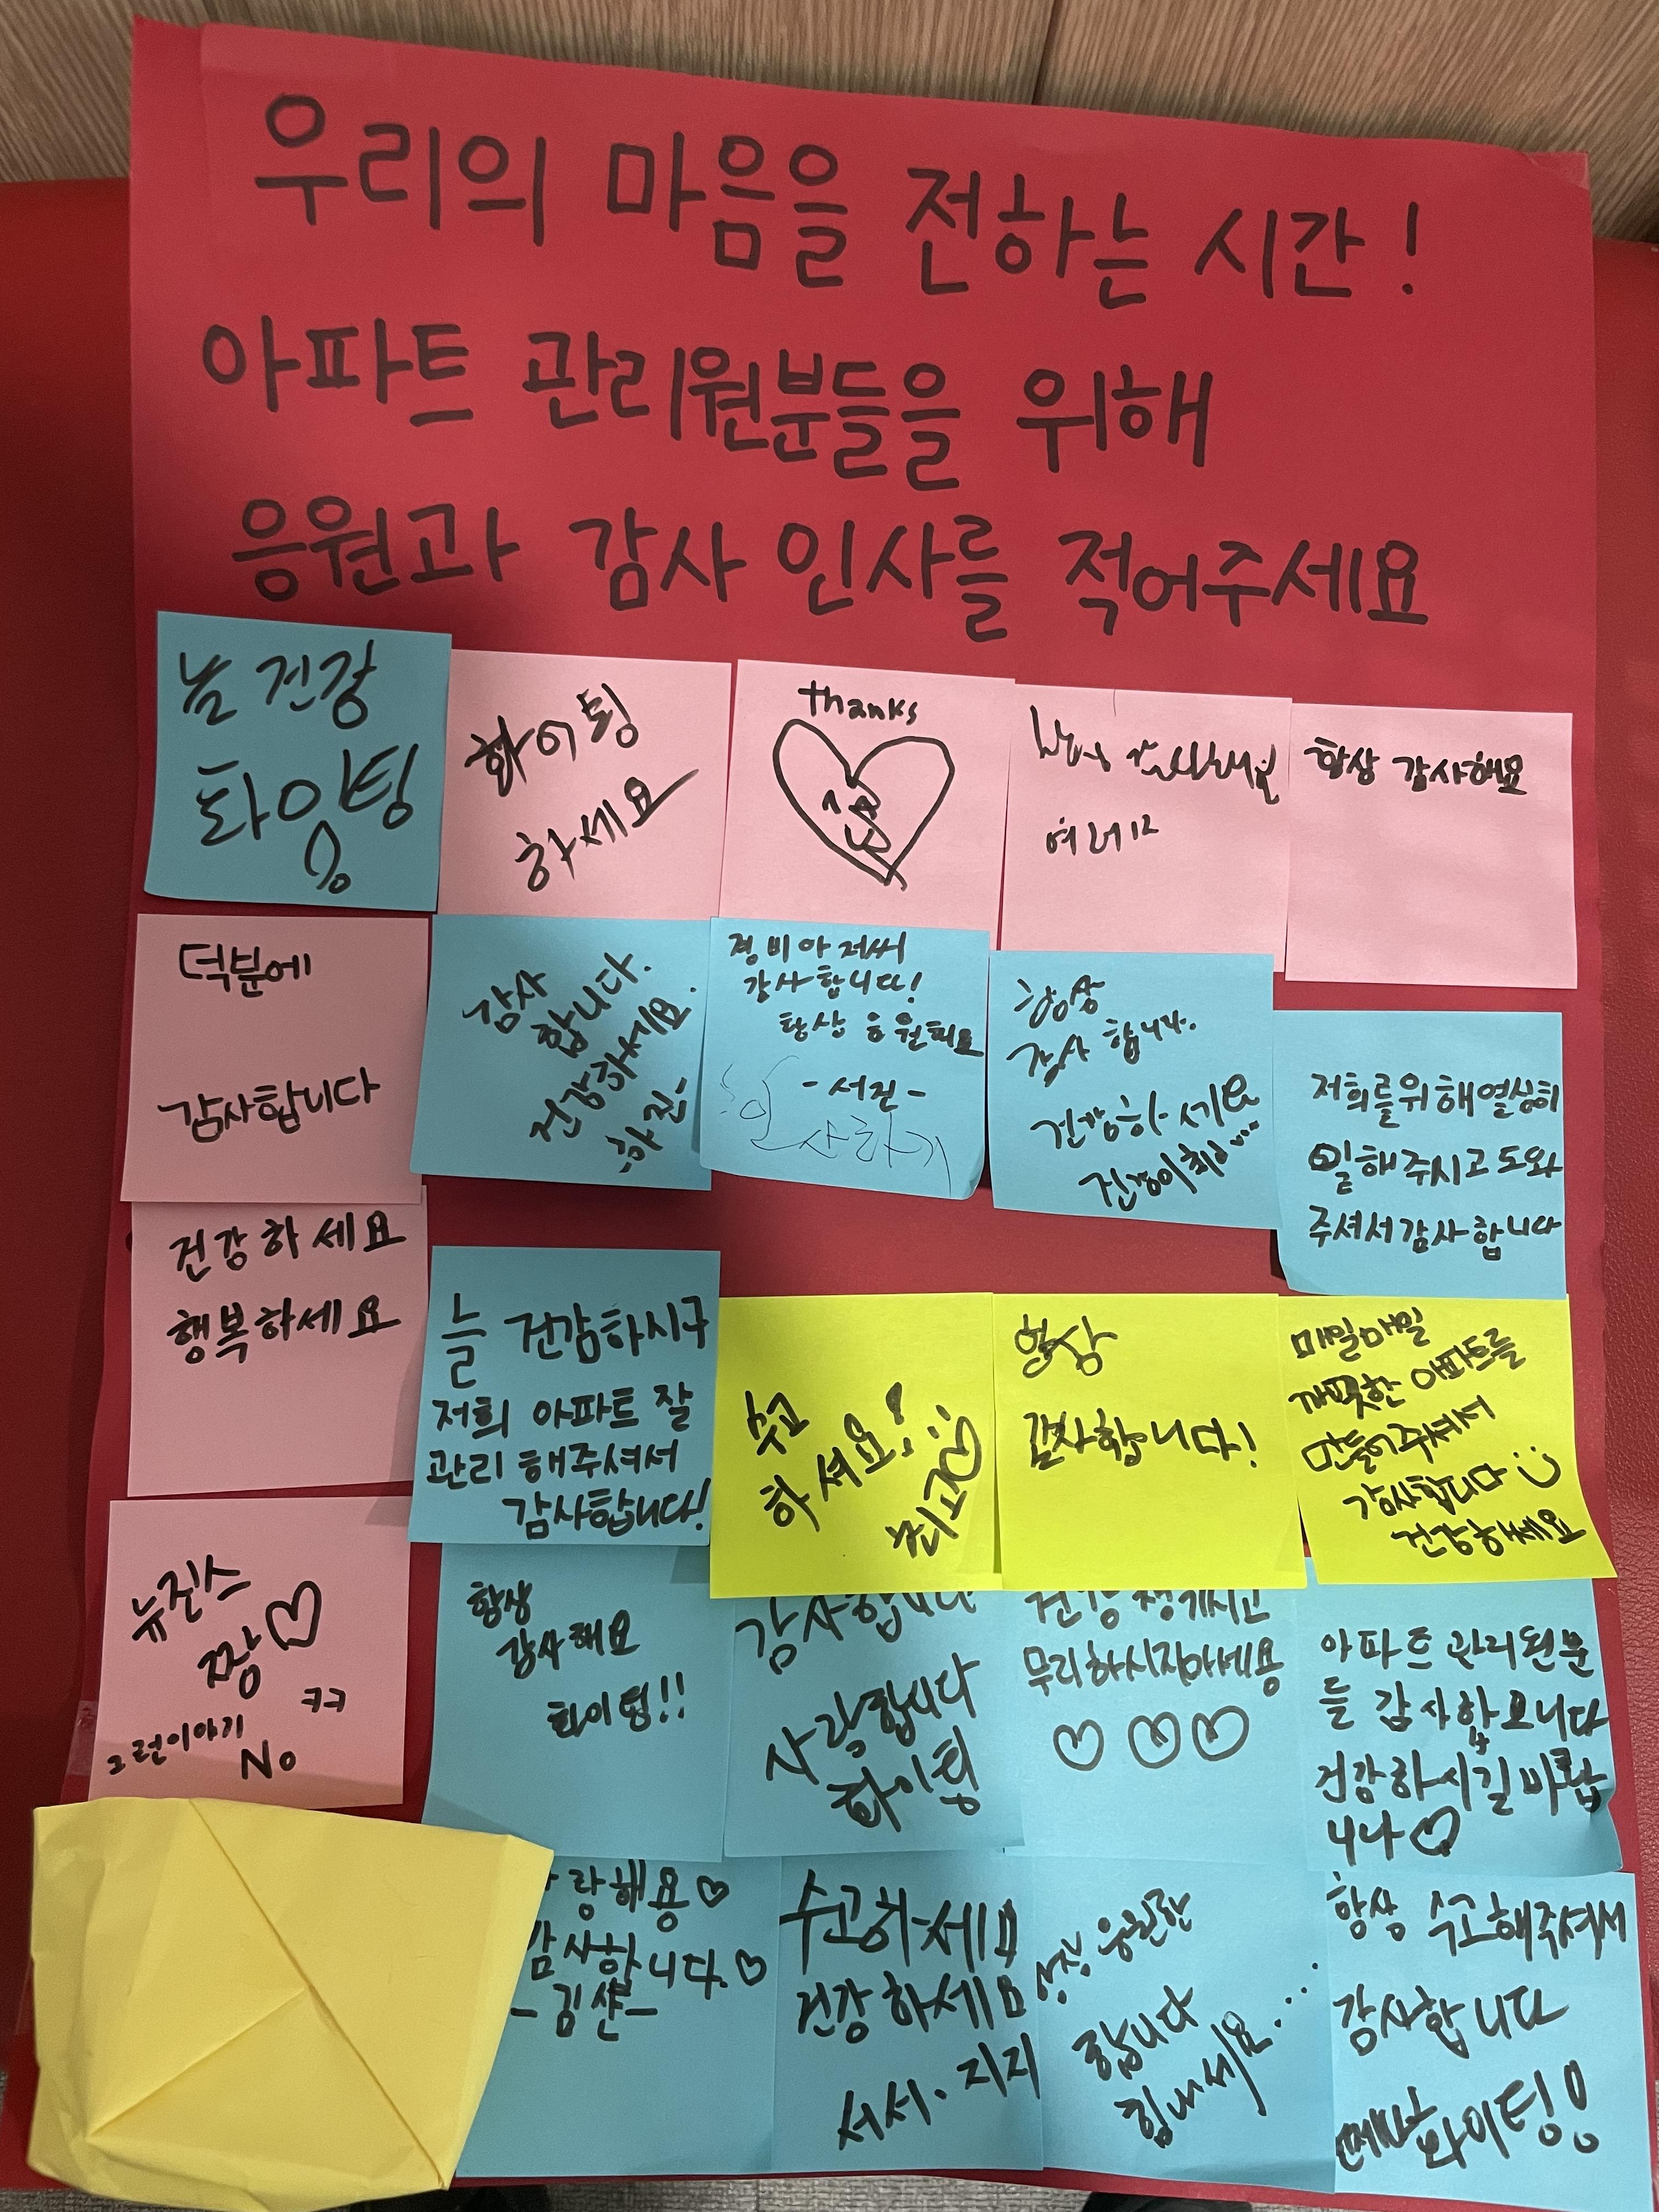 우리의 마음을 전하는 시간!
아파트 관리원분들을 위해
응원과 감사 인사를 적어주세요
늘 건강
화이팅
하세요
thanks
항상 감사해요
덕분에
감사합니다
감사
합니다.
건강하세요.
-하진-
경비아저씨
감사합니다!
항상 응원해요
-서진-
사라하기
항상
감사합니다.
건강하세요
건강이 최고
저희를위해열심히
일해주시고도와
주셔서감사합니다
건강하세요
행복하세요
늘 건강하시구
저희 아파트 잘
관리해주셔서
감사합니다!
수고
하셔요!
최고
항상
감사합니다!
매일매일
깨끗한 아파트를
만들어주셔서
감사합니다
건강하세요
뉴진스
짱♡
ㅋㅋ
그런이야기
No
항상
감사해요
화이팅!!
감사합니다
사랑합니다
화이팅
무리하시지마세용
♡ ♡ ♡
아파트 관리원분
들 감사합
건강하시길바랍
니다♡
랑해용♡
감사합니다.♡
수고하세요
건강하세요
서서·지지
응원한
합니다
힘내세요...
항상 수고해주셔서
감사합니다
화이팅!